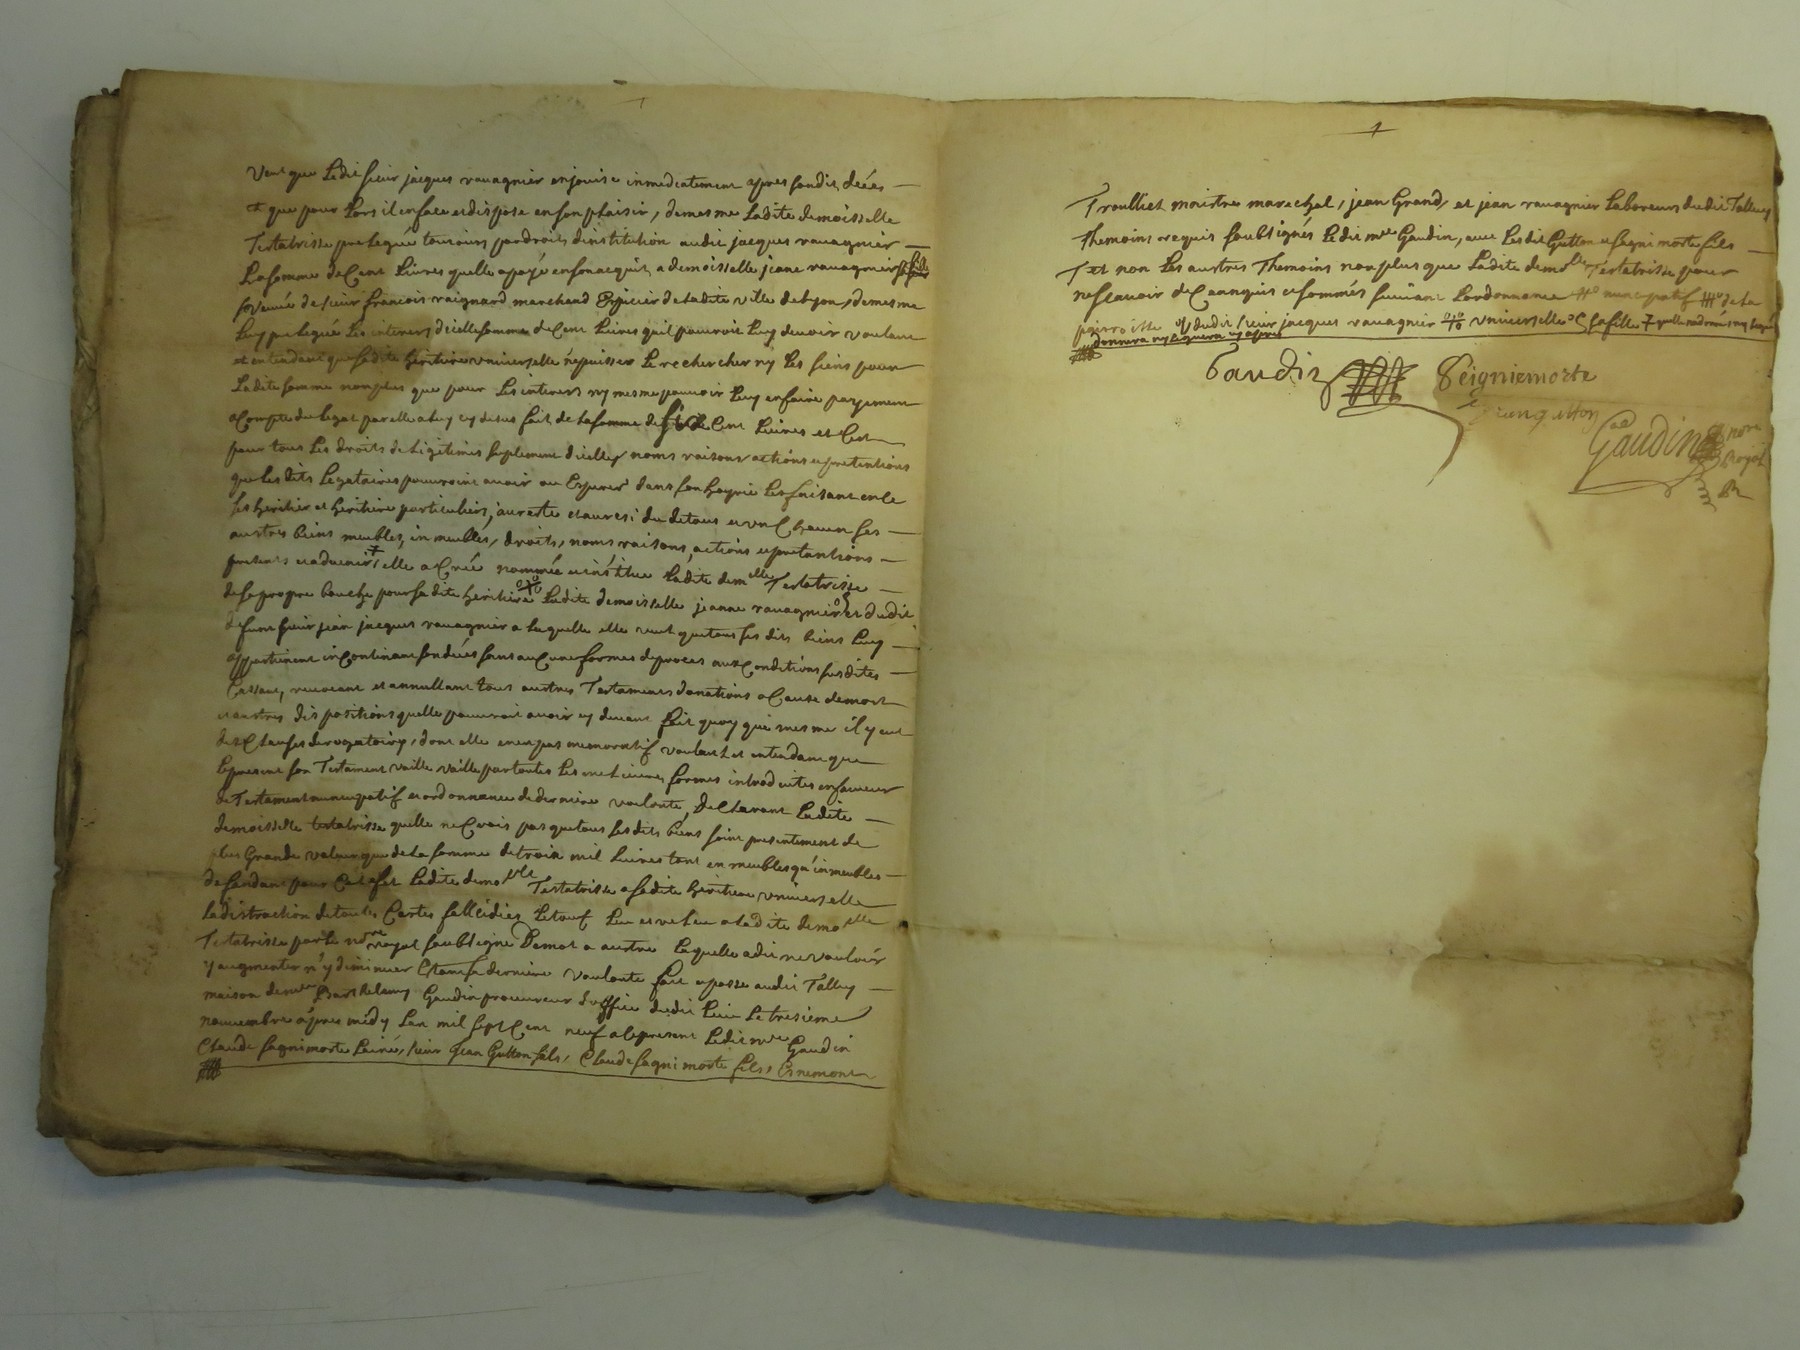 Veut que Ledit sieur jacques ravagnier enjouisse inmediatement apres sondit décés
et que pour Lors il en face et dispose en son plaisir, demesme Ladite demoisselle
Testatrisse preleguée tousiours pardroits dinstitution audit jacques ravagnier
La somme de Cent Livres quelle a payé en son acquit, a demoisselle jeane ravagnier sa fille
veuvée de sieur francois raignard marchand Epicier de Ladite ville de Lyon, demesme
Luy preleguée Les interers dicelle somme de Cent Livres quil pourroit Luy devoir voulant
et entandant que sadite heritiere vniverselle né puisse Le rechercher ny Les siens pour
Ladite somme nonplus que pour Les interers ny mesme pouvoir Luy en faire payement
a Compte du Legat par elle a Luy cy desus fait de La somme de six Cent Livres et Cest
pour tous Les droits de Legitimes suplement dicelles noms raisons actions et pretentions
que Lesdits Legataires pourroint avoir ou Esperer dans son hoyrie Les faisant en Ce
ses heritier et heritiere particuliers, au reste et aures: du de tous et vn Chacun ses
austres biens meubles, inmeubles, droits, noms raisons, actions et pretantions
presents et advenir elle a Créé nommée et institue Ladite demelle Testatrisse
de sa propre bouche pour sadite heritiere Ladite demoisselle jeanne ravagnier et dudit
defunt sieur jean jacques ravagnier a Laquelle elle veut que tous sesdits biens Luy
appartienent incontinant son décés sans auCune formes de proces aux Conditions susdites
Cassant, revocant et annullant tous austres Testaments donations a Cause de mort
et austres dispositions quelle pourroit avoir cy devant fait quoy que mesme il y eut
des Clauses derogatoires, dont elle en est pas memoratif voulant et entendant que
Le present son Testament vaille vaille par toutes Les meilieures formes introduites en faveur
de Testament nuncupatif et ordonnance de derniere voulonté, DeClarant Ladite
demoisselle testatrisse quelle ne Crois pas que tous sesdits biens soint presentement de
plus Grande valeur que de La somme de trois mil Livres tant en meubles qu'inmeubles
defandant pour Cet effet Ladite demoslle Testatrisse a sadite heritiere vniverselle
La distraction de toutes Cartes fallcidies Letout Leu et releu a Ladite demoelle
Testatrisse par Le nore royal soubsigné Demot a austre Laquelle a dit ne vouloir
y augmenter n'y diminuer Estant sa derniere voulonté fait et passé audit Talluy
maison de mre Barthelemy Gaudin procureur d'office dudit Lieu Le tresieme
novembre apres midy Lan mil sept Cent neuf a Le present Ledit mre Gaudin
Claude sagnimorte Lainé, sieur Jean Gutton fils, Claude sagnimorte fils,
Troulliet maistre marechal, jean Grand, et jean ravagnier Laboreurs dudit Talluy
Themoins requis soubsignés Ledit mre Gaudin, avec Lesdit Gutton et sagnimorte fils
et non Les austres Themoins nonplus que Ladite demolle Testatrisse pour
ne scavoir de Ce enquis et sommés suivant Lordonnance nuncupatif de La
parroisse dudit sieur jacques ravagnier vniverselle sa fille
donnera ny Leguera cy apres
Gaudin
Seigniemorte
jean gutton
Gaudin nore
Royal